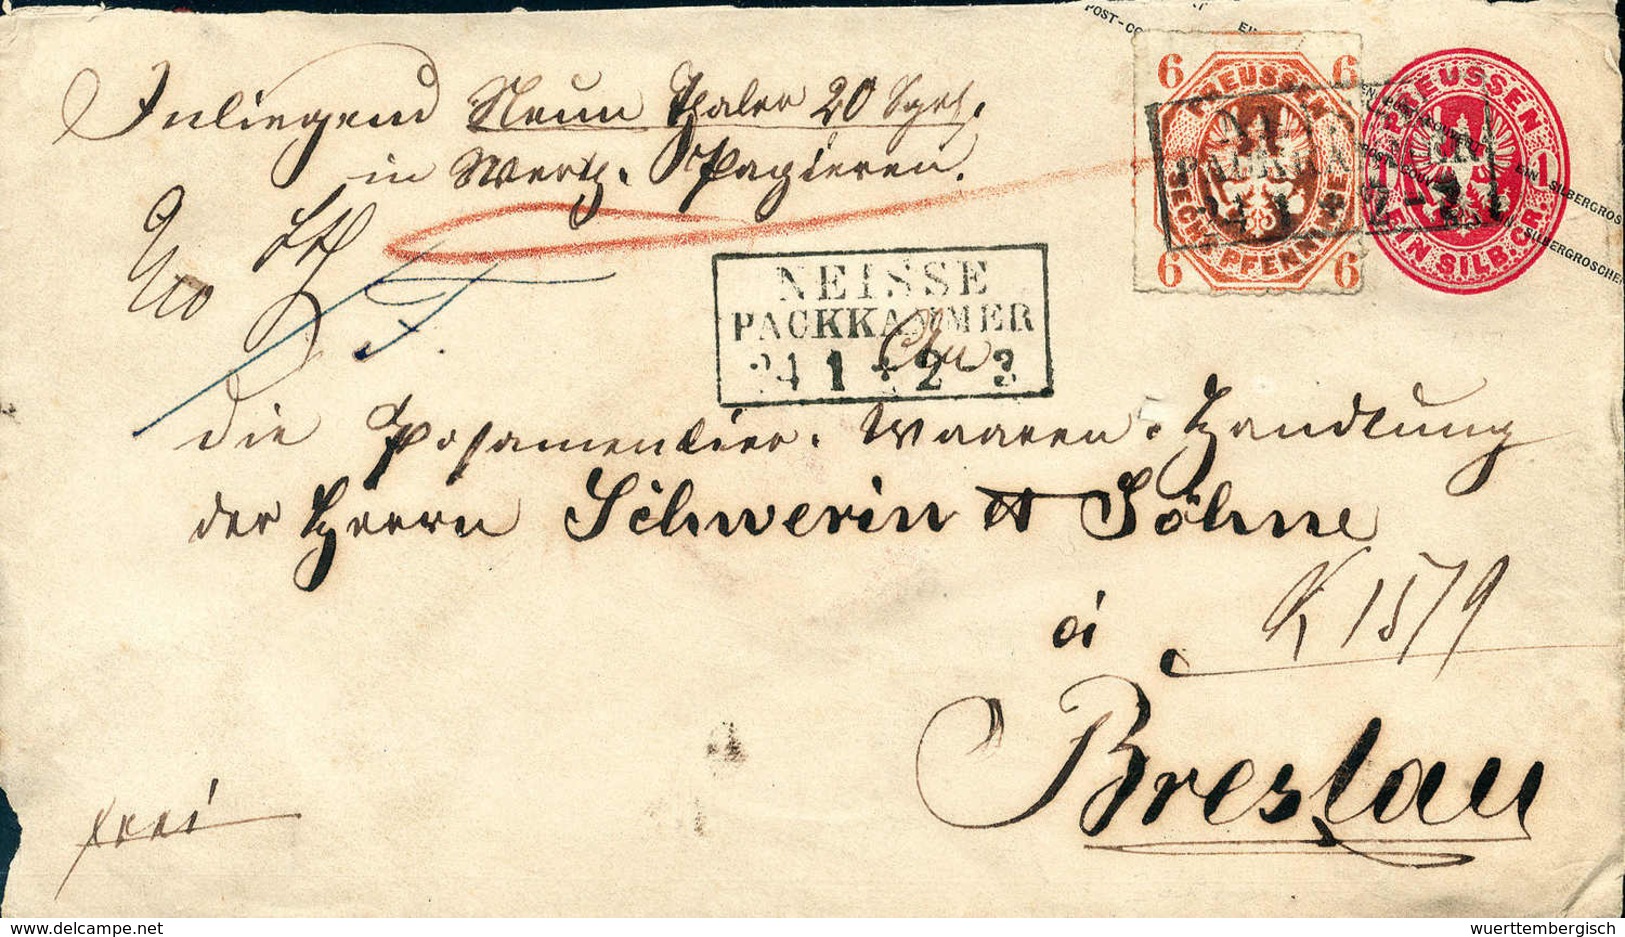 POST-CO
EIN
Inliegend Neun Thaler 20 Sgr.
in Werth-Papieren.
6 6
PREUSSEN
SECHS PFENNINGE
6 6
PREUSSEN
1 1
EIN SILB. GR.
EIN SILBERGROS
SILBERGROSCHEN
NEISSE
PACKKAMMER
24 1 * 2 - 3
die Posamentier-Waaren-Handlung
der Herren Schwerin & Söhne
à
K 1579
Breslau
frei
delcampe.net
wuerttembergisch